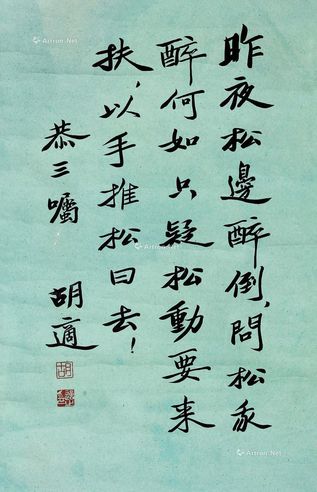 昨夜松邊醉倒,問松我
醉何如只疑松動要来
扶,以手推松曰去!
恭三囑 胡適
胡
Artron.Net